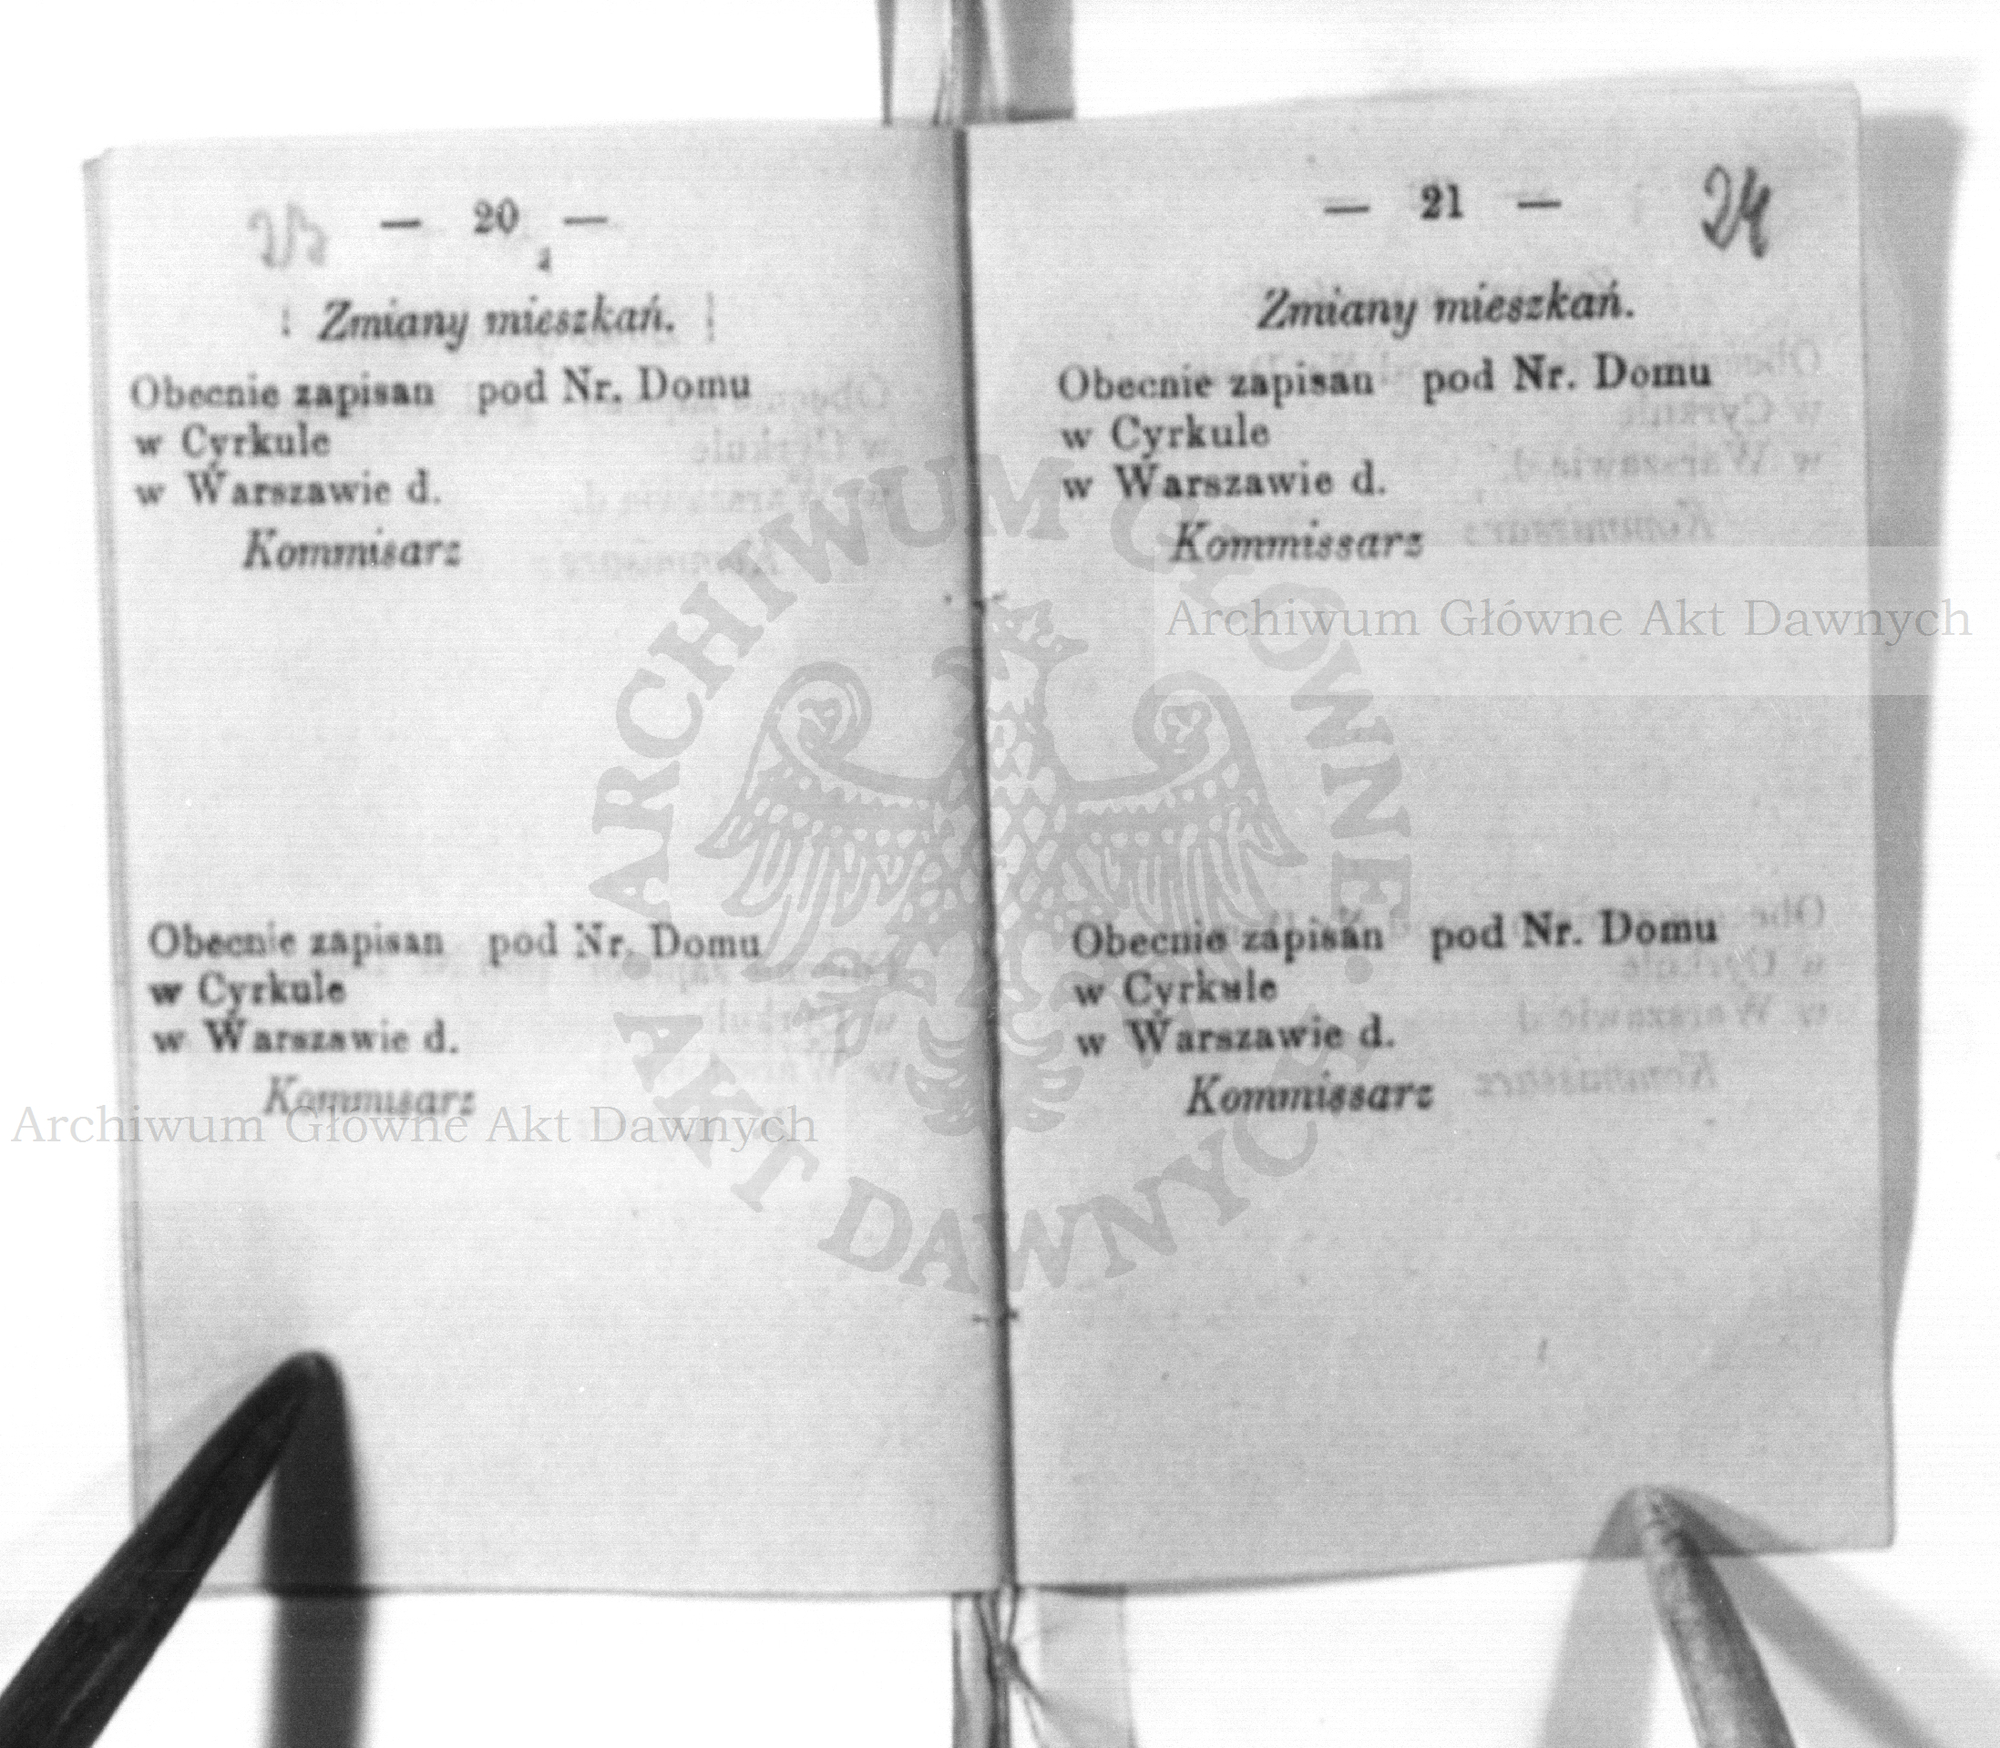 — 20 —
Zmiany mieszkań.
Obecnie zapisan pod Nr. Domu
w Cyrkule
w Warszawie d.
Kommisarz
Obecnie zapisan pod Nr. Domu
w Cyrkule
w Warszawie d.
Kommisarz
— 21 —
24
Zmiany mieszkań.
Obecnie zapisan pod Nr. Domu
w Cyrkule
w Warszawie d.
Kommissarz
Obecnie zapisan pod Nr. Domu
w Cyrkule
w Warszawie d.
Kommissarz
ARCHIWUM GŁÓWNE
AKT DAWNYCH
Archiwum Główne Akt Dawnych
Archiwum Główne Akt Dawnych